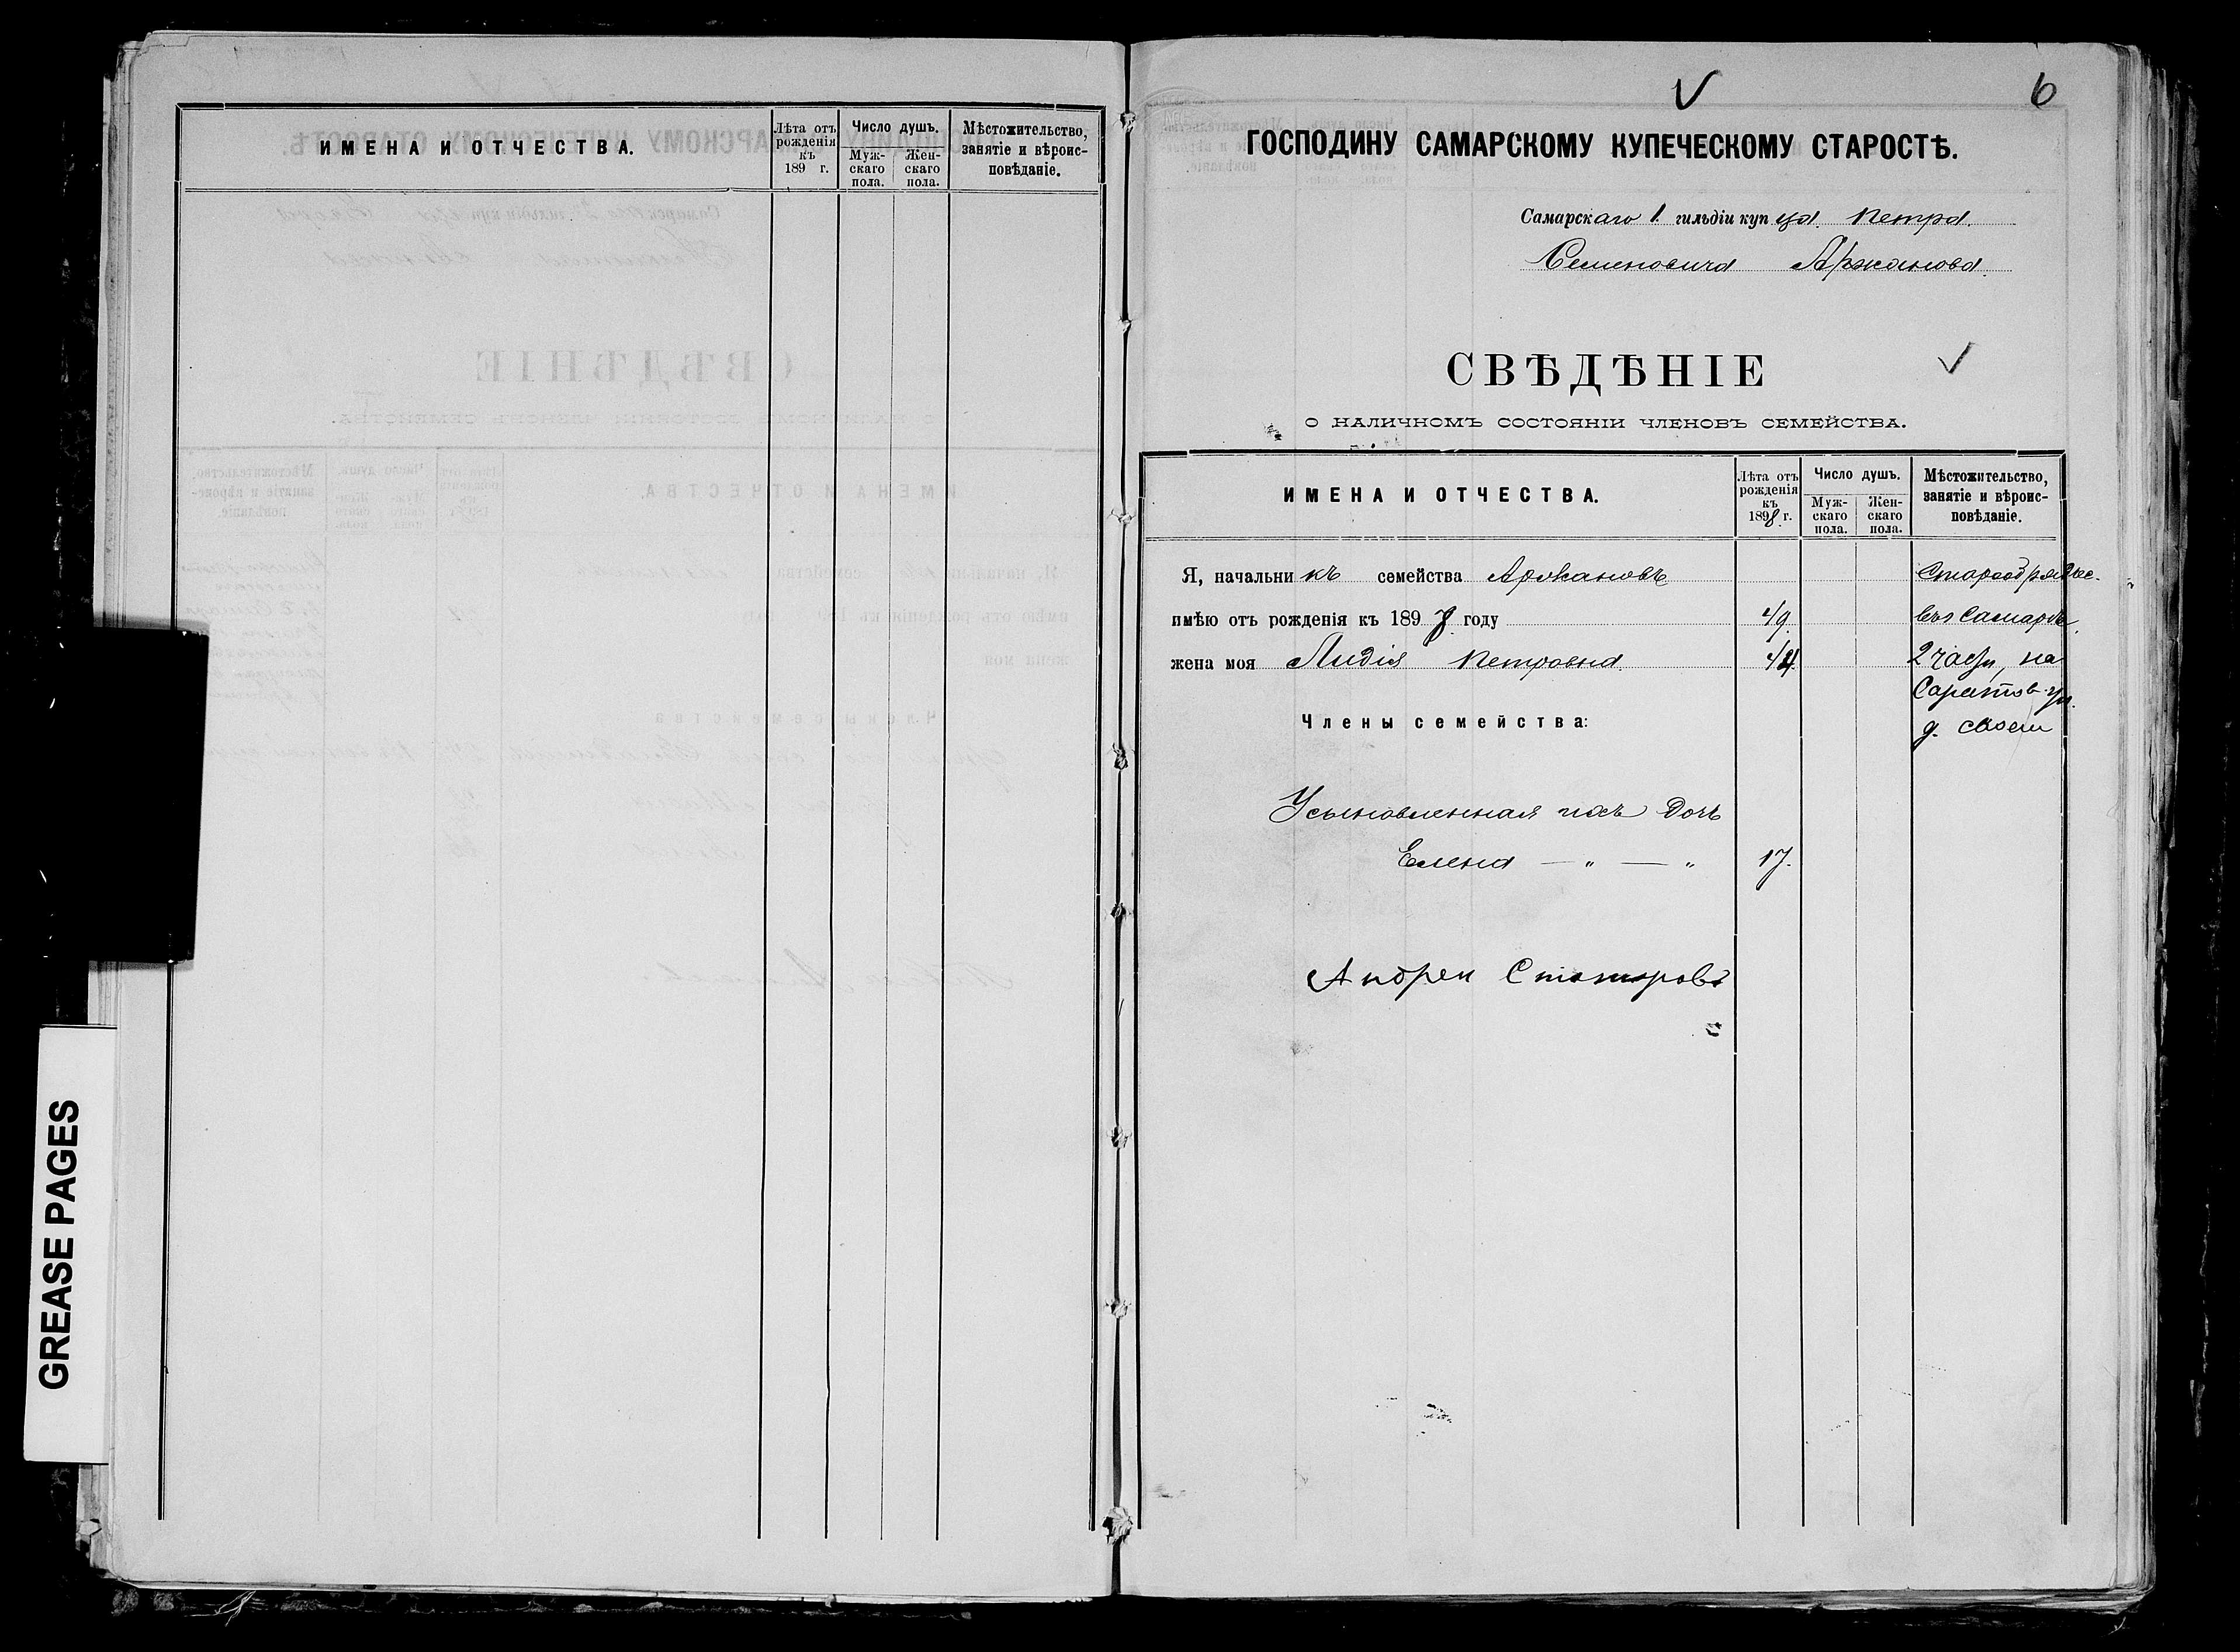 ИМЕНА И ОТЧЕСТВА.
Лѣта отъ рожденія къ 189 г.
Число душъ.
Мужскаго пола.
Женскаго пола.
Мѣстожительство, занятіе и вѣроисповѣданіе.
6
ГОСПОДИНУ САМАРСКОМУ КУПЕЧЕСКОМУ СТАРОСТѢ.
Самарскаго 1. гильдіи купца Петра
Семеновича Аржанова.
СВѢДѢНІЕ
О НАЛИЧНОМЪ СОСТОЯНІИ ЧЛЕНОВЪ СЕМЕЙСТВА.
ИМЕНА И ОТЧЕСТВА.
Лѣта отъ рожденія къ 1898 г.
Число душъ.
Мужскаго пола.
Женскаго пола.
Мѣстожительство, занятіе и вѣроисповѣданіе.
Я, начальникъ семейства Аржановъ
имѣю отъ рожденія къ 1898 году 49.
жена моя Лидія Петровна 44.
Старообрядчес.
въ Самарѣ,
2 части, на
Саратов. ул.
д. своем
Члены семейства:
Усыновленная ихъ дочь
Елена — " — " 17.
Андрей
GREASE PAGES